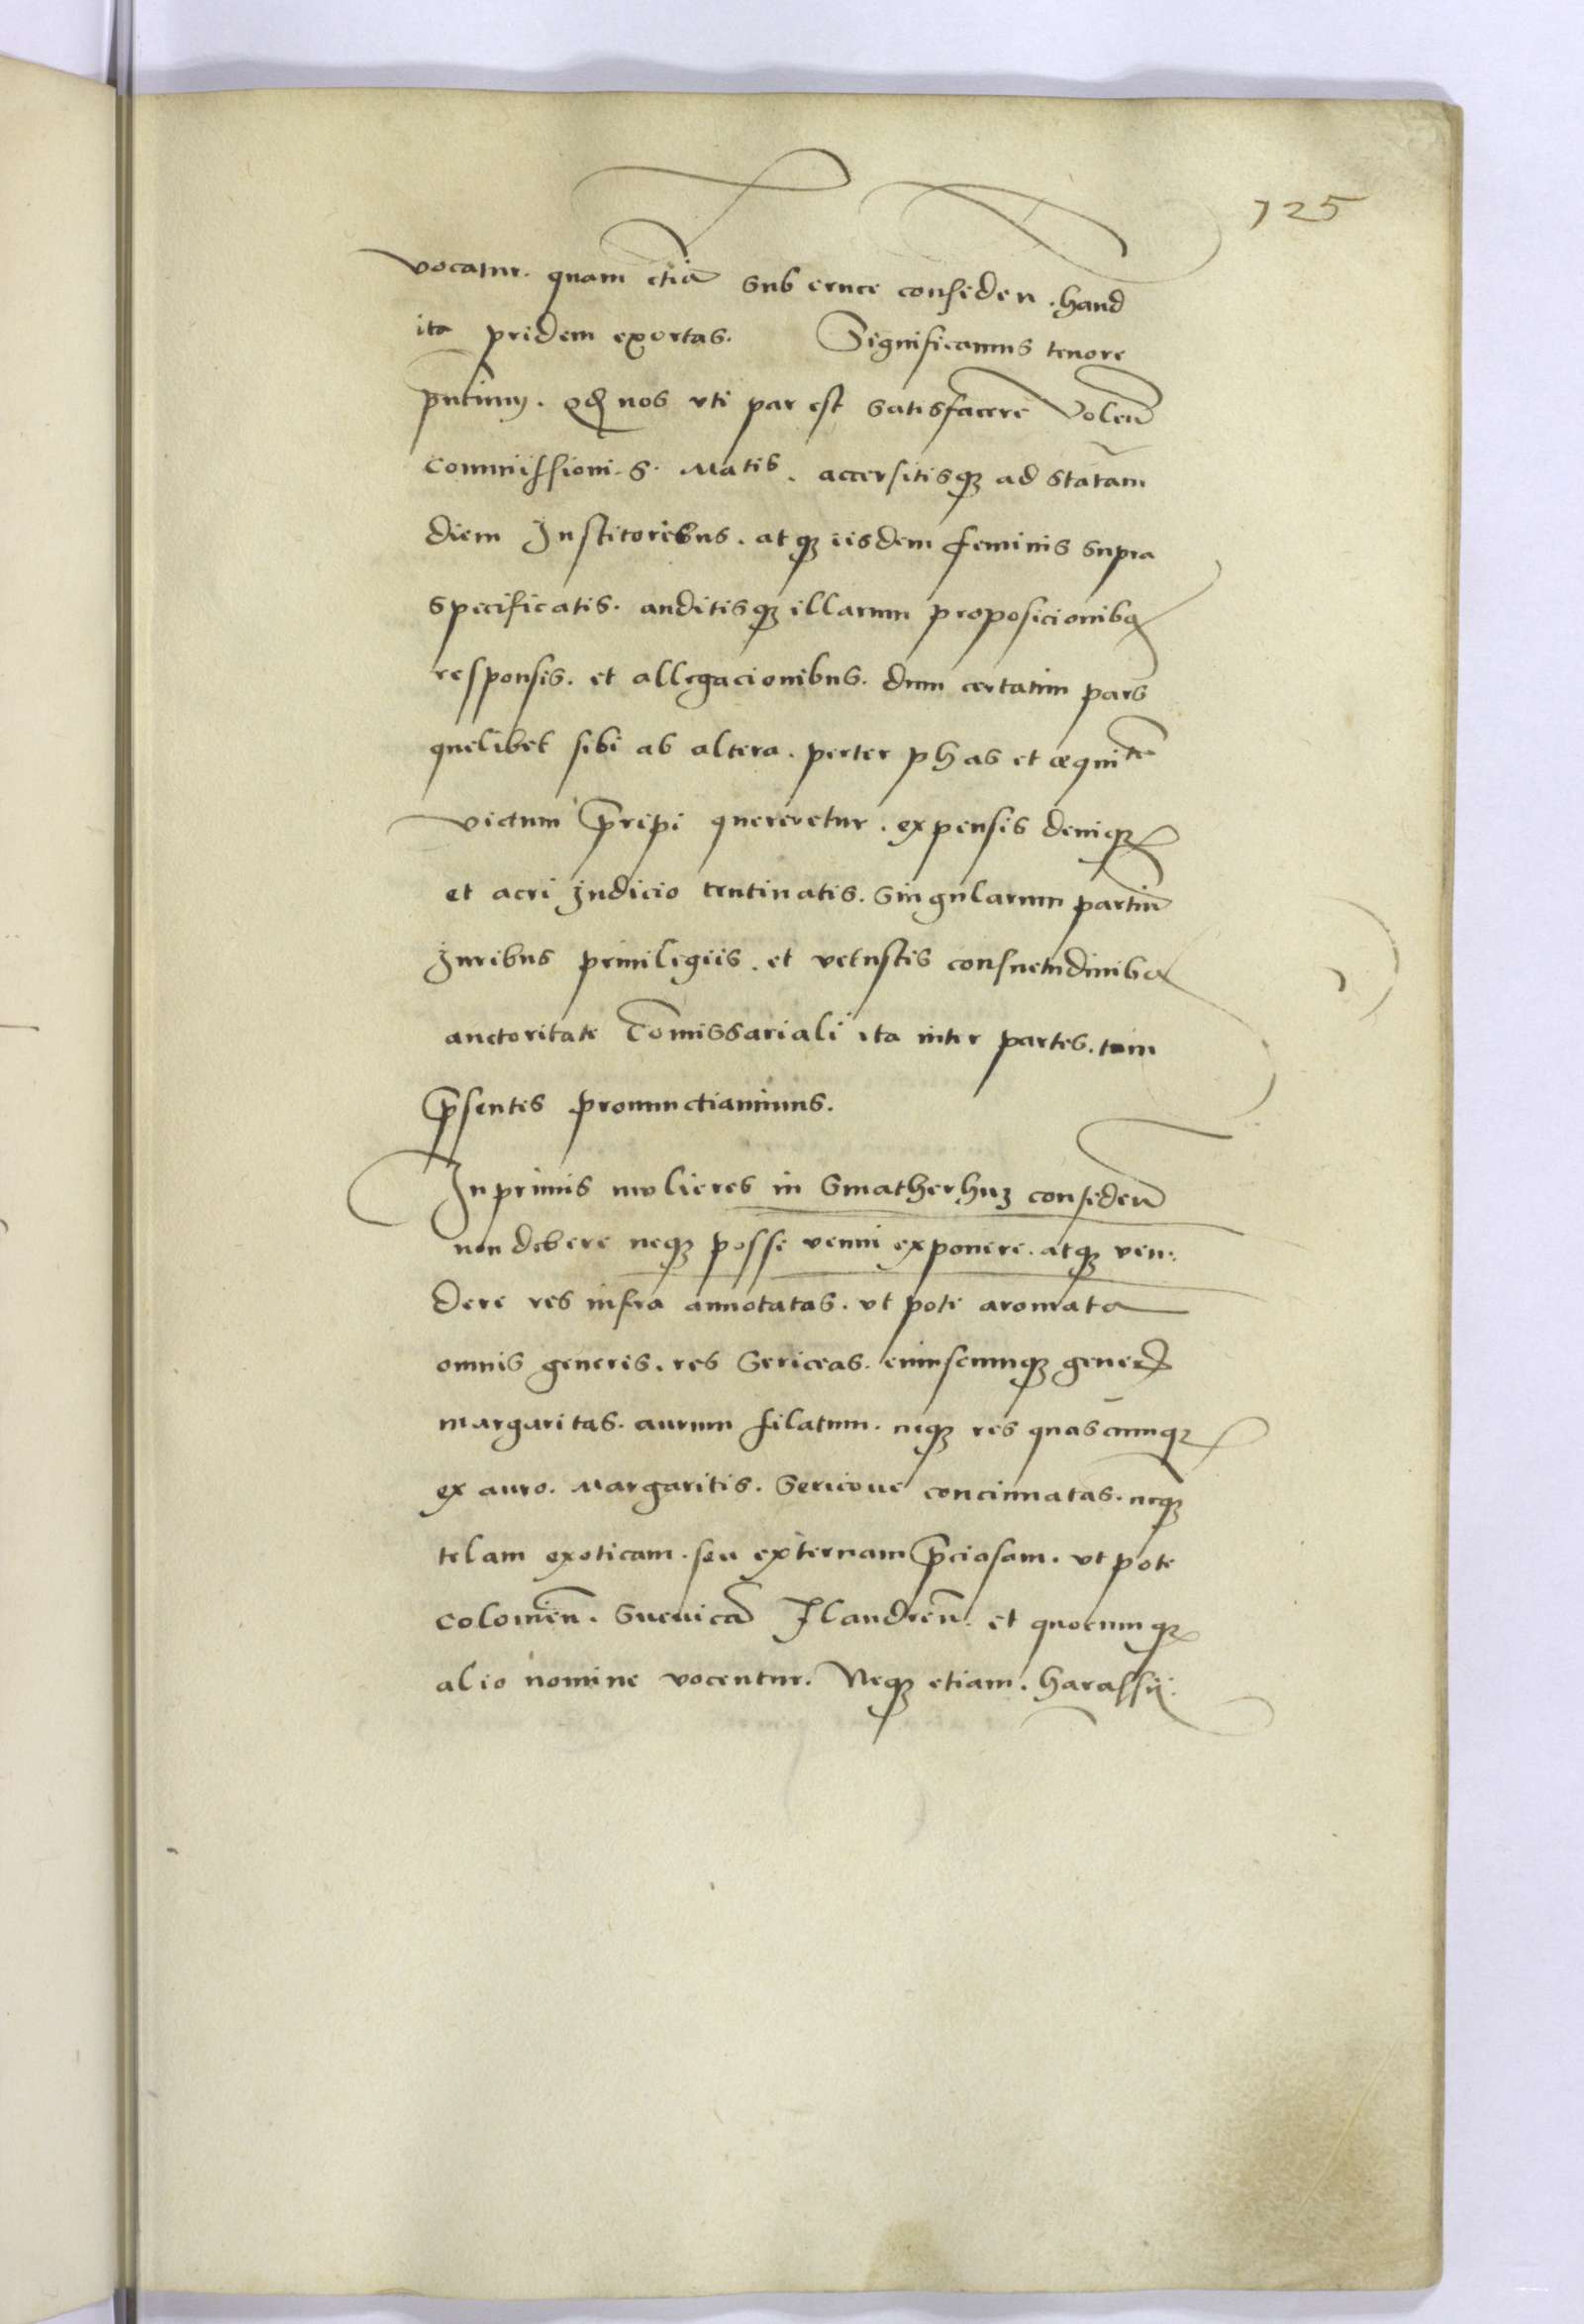 125
vocatur. quam etiā sub cruce conseden. haud
ita pridem exortas. Significamus tenore
pn̄tium. qđ nos vti par est satisfacere volen̄
commissioni. S. Matis. accersitisqʒ ad statam
diem Institoribus. at qʒ iisdem feminis supra
specificatis. auditisqʒ illarum proposicionibꝫ
responsis. et allegacionibus. dum certatim pars
quelibet sibi ab altera. preter phas et æquite
victum p̄ripi quereretur. expensis deniqʒ
et acri Judicio trutinatis. singularum partiū
Juribus priuilegiis. et vetustis consuetudinibꝫ
auctoritate Com̄issariali ita inter partes. tum
p̄sentes pronunctiauimus.
Inprimis mulieres in Smatherhuz conseden̄
non debere neqʒ posse venui exponere. atqʒ ven.
dere res infra annotatas. vt pote aromata
omnis generis. res sericeas. cuiuscunqʒ generis
margaritas. aurum filatum. neqʒ res quascunqʒ
ex auro. Margaritis. Sericoue concinnatas. neqʒ
telam exoticam. seu externam p̄ciosam. vt pote
colonien̄. Sueuicā Flandren̄. et quocunqʒ
alio nomine vocentur. Neqʒ etiam. harassij.